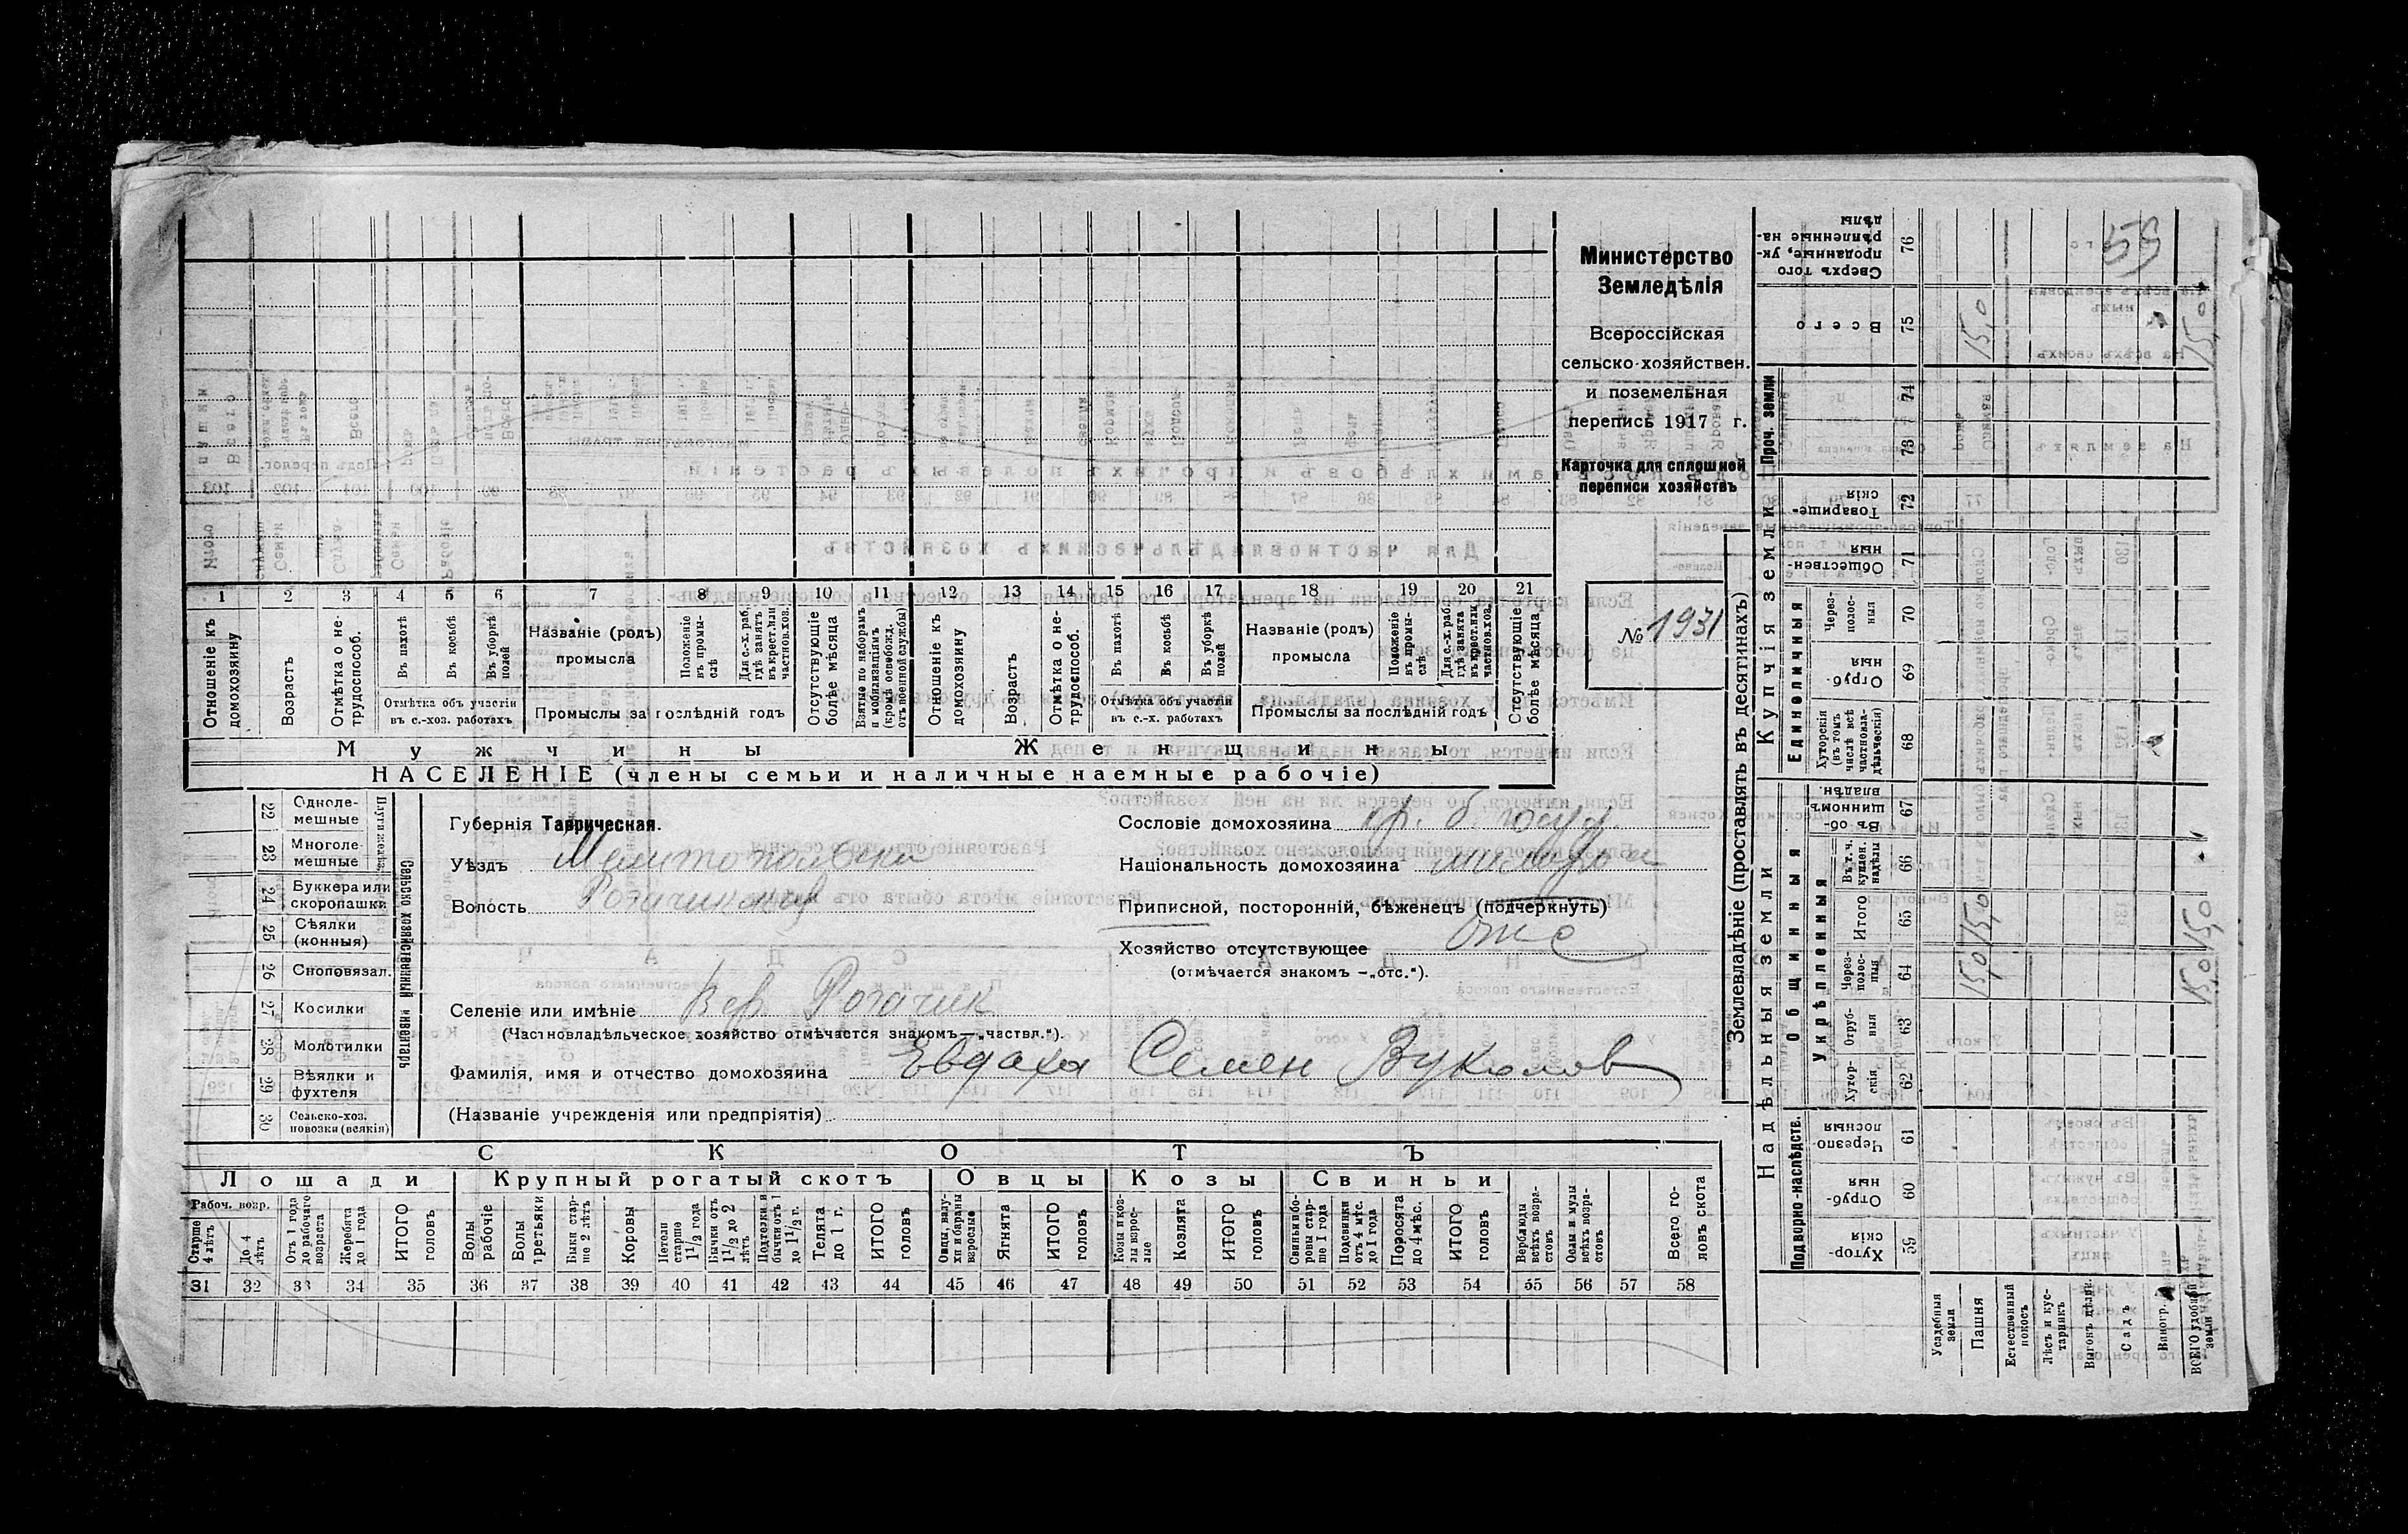 Министерство
Земледѣлія
Всероссійская
сельско-хозяйствен.
и поземельная
перепись 1917 г.
Карточка для сплошней
переписи хозяйствъ
№ 1931
1 2 3 4 5 6 7 8 9 10 11 12 13 14 15 16 17 18 19 20 21
Отношеніе къ домохозяину
Возрастъ
Отмѣтка о не-трудоспособ.
Въ пахотѣ
Въ косьбѣ
Въ уборкѣ полей
Отмѣтка объ участіи
въ с.-хоз. работахъ
Названіе (родъ)
промысла
Положеніе въ промы-слѣ
Для с.-х. раб. гдѣ занятъ въ крест. или частнов. хоз.
Промыслы за послѣдній годъ
Отсутствующіе болѣе мѣсяца
Взятые по наборамъ и мобилизаціямъ (кромѣ освобожд. отъ военной службы)
Отношеніе къ домохозяину
Возрастъ
Отмѣтка о не-трудоспособ.
Въ пахотѣ
Въ косьбѣ
Въ уборкѣ полей
Отмѣтка объ участіи
въ с.-х. работахъ
Названіе (родъ)
промысла
Положеніе въ промы-слѣ
Для с.-х. раб. гдѣ занята въ крест. или частнов. хоз.
Промыслы за послѣдній годъ
Отсутствующіе болѣе мѣсяца
Мужчины
Женщины
НАСЕЛЕНІЕ (члены семьи и наличные наемные рабочіе)
Сельско хозяйственный инвентарь
22 Одноле-мешные
23 Многоле-мешные
24 Буккера или скоропашки
25 Сѣялки (конныя)
26 Сноповязал.
27 Косилки
28 Молотилки
29 Вѣялки и фухтеля
30 Сельско-хоз. повозки (всякія)
Губернія Таврическая.
Уѣздъ Мелитопольскій
Волость Рогачикская
Селеніе или имѣніе Вер. Рогачик
(Частновладѣльческое хозяйство отмѣчается знакомъ — „частвл.").
Фамилія, имя и отчество домохозяина Евдаха Семен Вуколов
(Названіе учрежденія или предпріятія)
Сословіе домохозяина кр. б. госуд.
Національность домохозяина
Приписной, посторонній, бѣженецъ (подчеркнуть)
Хозяйство отсутствующее Отс
(отмѣчается знакомъ —„отс.").
СКОТЪ
Лошади
Крупный рогатый скотъ
Овцы
Козы
Свиньи
Рабоч. возр.
Старше 4 лѣтъ
До 4 лѣтъ
Отъ 1 года до рабочаго возраста
Жеребята до 1 года
ИТОГО головъ
Волы рабочіе
Волы третьяки
Быки стар-ше 2 лѣтъ
Коровы
Нетели старше 1½ года
Бычки отъ 1½ до 2 лѣтъ
Подтелки и бычки отъ 1 до 1½ г.
Телята до 1 г.
ИТОГО головъ
Овцы, валу-хи и бараны взрослые
Ягнята
ИТОГО головъ
Козы и коз-лы взрос-лые
Козлята
ИТОГО головъ
Свиньи и бо-ровы стар-ше 1 года
Подсвинки отъ 4 мѣс. до 1 года
Поросята до 4 мѣс.
ИТОГО головъ
Верблюды всѣхъ возра-стовъ
Ослы и мулы всѣхъ возра-стовъ
Всего го-ловъ скота
31 32 33 34 35 36 37 38 39 40 41 42 43 44 45 46 47 48 49 50 51 52 53 54 55 56 57 58
Землевладѣніе (проставлять въ десятинахъ)
Надѣльныя земли
Купчія земли
Проч. земли
Подворно-наслѣдств.
Общинныя
Укрѣпленныя
Единоличныя
Хутор-скія 59
Отруб-ныя 60
Черезпо-лосныя 61
Хутор-скія 62
Отруб-ныя 63
Через-полос-ныя 64
Итого 65
Въ т. ч. куплен. надѣлы 66
Въ об-щинномъ владѣн. 67
Хуторскія (въ томъ числѣ всѣ частновла-дѣльческія) 68
Отруб-ныя 69
Через-полос-ныя 70
Обществен-ныя 71
Товарище-скія 72
73
74
Всего 75
Сверхъ того проданные, ук-рѣпленные на-дѣлы 76
Усадебныя земли
Пашня 15,0 15,0 15,0
Естественный покосъ
Лѣсъ и кус-тарникъ
Выгонъ дѣли.
Садъ
Виногр.
ВСЕГО удобной земли 15,0 15,0 15,0
59